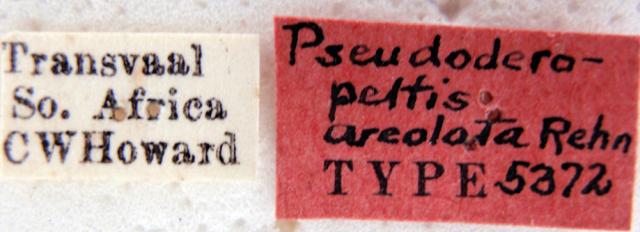 Transvaal
So. Africa
CWHoward
Pseudodero-
peltis
areolata Rehn
TYPE 5372